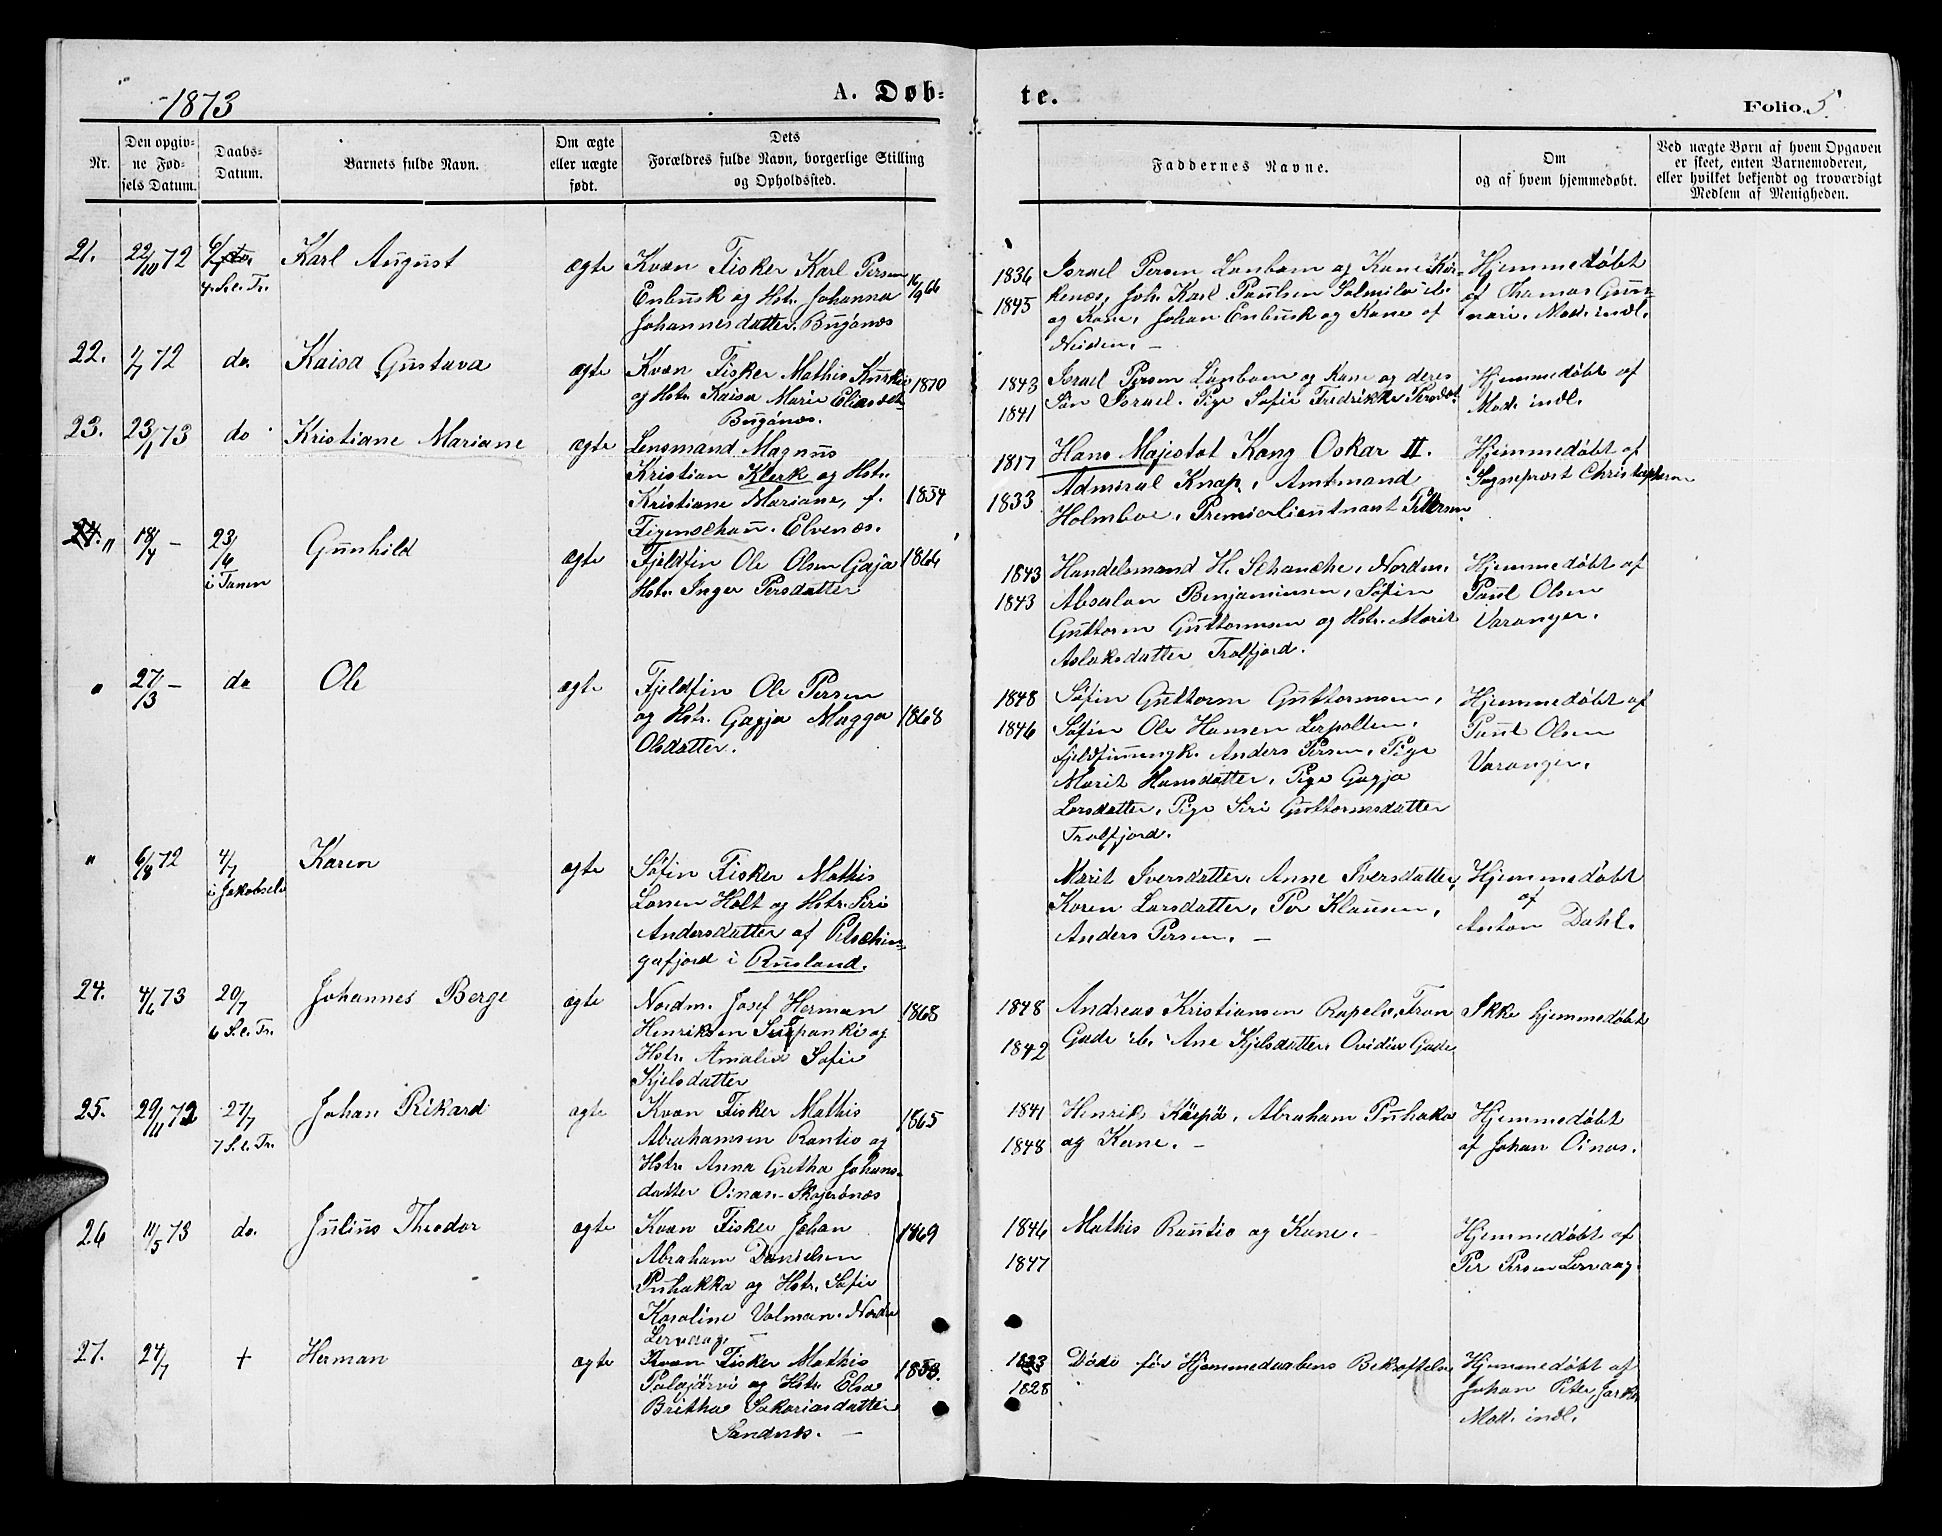 1873
A. Døb-
te.
Folio 5.
Nr.
Den opgiv-
ne Fød-
sels Datum.
Daabs-
Datum.
Barnets fulde Navn.
Om ægte
eller uægte
født.
Dets
Forældres fulde Navn, borgerlige Stilling
og Opholdssted.
Faddernes Navne.
Om
og af hvem hjemmedøbt.
Ved uægte Børn af hvem Opgaven
er skeet, enten Barnemoderen,
eller hvilket bekjendt og troværdigt
Medlem af Menigheden.
21. 22/10 72
4 S. e. Tr.
Karl August
ægte
Kvæn Fisker Karl Persen
Enbusk og Hstr. Johanna
Johannesdatter. Bugönæs
16/9 66
1836
1845
Israel Persen Lanbam og Kone Kir-
kenæs, Joh. Karl Paulsen
og Kone, Johan Enbusk og Kone af
Neiden. —
Hjemmedöbt
af Thomas Gun-
nari. Mod. indl.
22. 1/7 72 do. Kaisa Gustava ægte
Kvæn Fisker Mathis Kurkio
og Hstr. Kaisa Maria Eliasdtr.
Bugönæs.
1870
1843
1841
Israel Persen Lanbam og Kone og deres
Sön Israel. Pige Sofie Fredrikke Persdat.
Hjemmedöbt af
Mod. indl.
23. 23/1 73 do. Kristiane Mariane ægte
Lensmand Magnus
Kristian Klerk og Hstr.
Kristiane Mariane, f.
Figenschau. Elvenæs.
1854
1817
1833
Hans Majestæt Kong Oskar II.
Admiral Knap, Amtmand
Holmboe. Premierlieutnant Petersen.
Hjemmedöbt af
Sogneprost Christophersen
24. " 18/4 — 23/6
i Tanen
Gunhild
ægte
Fjeldfin Ole Olsen Gaja
Hstr. Inger Persdatter
1866
1843
1843
Handelsmand H. Schanche. Nordm.
Absalon Benjaminsen, Söfin
Guttorm Guttormsen og Hstr. Marit
Aslaksdatter Trolfjord.
Hjemmedöbt af
Paul Olsen
Varanger.
" 27/3 — do Ole ægte
Fjeldfin Ole Persen
og Hstr. Gagja Magga
Olsdatter.
1868
1848
1846
Söfin Guttorm Guttormsen,
Söfin Ole Hansen Lerpollen.
fjeldfinungk. Anders Persen, Pige
Marit Hansdatter, Pige Gagja
Larsdatter, Pige Siri Guttormsdatter
Trolfjord.
Hjemmedöbt af
Paul Olsen
Varanger.
" 6/8 72 4/7
i Jakobselv
Karen
ægte
Söfin Fisker Mathis
Larsen Holt og Hstr. Siri
Andersdatter af Petschin-
gafjord i Rusland.
Marit Iversdatter, Anne Iversdatter,
Karen Larsdatter, Per Klausen,
Anders Persen. —
Hjemmedöbt
af
Anton Dahl.
24. 4/6 73 20/7
6 S. e. Tr.
Johannes Berge
ægte
Nordm. Josef Herman
Henriksen og
Hstr. Amalie Sofie
Kjelsdatter
1868
1848
1842
Andreas Kristiansen Ropelv, Fron
Gade ib. Ane Kjelsdatter. Ovidia Gade
Ikke hjemmedöbt
25. 29/11 72 27/7
7 S. e. Tr.
Johan Rikard
ægte
Kvæn Fisker Mathis
Abrahamsen Rantio og
Hstr. Anna Gretha Johans-
datter Oinas. Skogerönæs
1865
1841
1848
Henrik Karpö, Abraham Puhaka
og Kone. —
Hjemmedöbt
af Johan Oinas.
26 11/5 73 do. Julius Theodor ægte
Kvæn Fisker Johan
Abraham Danielsen
Puhakka og Hstr. Sofie
Karoline Valman. Nordre
Lervaag.
1869
1846
1847
Mathis Rautio og Kone. —
Hjemmedöbt af
Per Persen Lervaag.
27. 24/7 + Herman ægte
Kvæn Fisker Mathis
Palojärvi og Hstr. Elsa
Britha Sakariasdatter
Sandnæs. —
1853.
1823
1828
Döde för Hjemmedaabens Bekræftelse
Hjemmedöbt af
Johan Peter Jarko
Mod. indl.